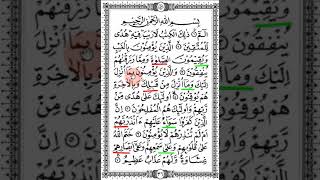 بِسْمِ اللهِ الرَّحْمٰنِ الرَّحِيْمِ
الٓمّٓ ۞ ذٰلِكَ الْكِتٰبُ لَا رَيْبَ فِيْهِ هُدًى
لِّلْمُتَّقِيْنَ ۞ الَّذِيْنَ يُؤْمِنُوْنَ بِالْغَيْبِ
وَيُقِيْمُوْنَ الصَّلٰوةَ وَمِمَّا رَزَقْنٰهُمْ
يُنْفِقُوْنَ ۞ وَالَّذِيْنَ يُؤْمِنُوْنَ بِمَآ اُنْزِلَ
اِلَيْكَ وَمَآ اُنْزِلَ مِنْ قَبْلِكَ وَبِالْاٰخِرَةِ
هُمْ يُوْقِنُوْنَ ۞ اُولٰٓئِكَ عَلٰى هُدًى مِّنْ
رَّبِّهِمْ وَاُولٰٓئِكَ هُمُ الْمُفْلِحُوْنَ ۞ اِنَّ
الَّذِيْنَ كَفَرُوْا سَوَآءٌ عَلَيْهِمْ ءَاَنْذَرْتَهُمْ
اَمْ لَمْ تُنْذِرْهُمْ لَا يُؤْمِنُوْنَ ۞ خَتَمَ اللهُ
عَلٰى قُلُوْبِهِمْ وَعَلٰى سَمْعِهِمْ وَعَلٰٓى اَبْصَارِهِمْ
غِشَاوَةٌ وَّلَهُمْ عَذَابٌ عَظِيْمٌ ۞